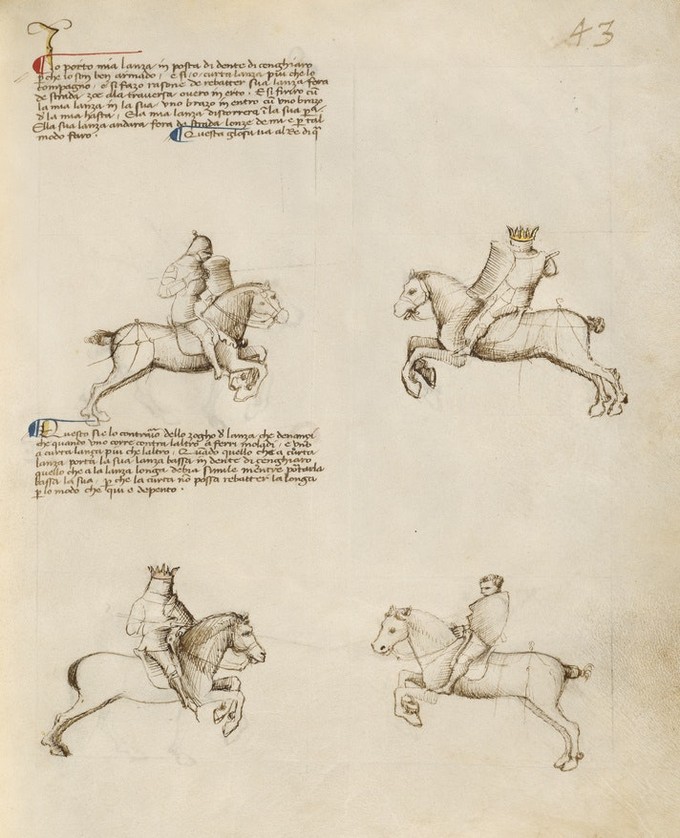 43
Io porto mia lanza in posta di dente di cenghiaro
p che lo son ben armado, e si ò curta lanza più che lo
compagno, e si fazo rasone de rebatter sua lanza fora
de strada, zoè ala traversa overo in erto. E si firirò cū
la mia lanza in la sua uno brazo in entro cū uno brazo
d la mia hasta. E la mia lanza discorrerà ī la sua
Ella sua lanza andarà fora de strada lonze de mi e p tal
modo farò.
Questa glosa va al Re di q
Questo sie lo dello zogho d lanza che denançi
che quando uno corre contra laltro a ferri moladi, e uno
a curta lança più che laltro. Quādo quello che a curta
lanza porta la sua lanza bassa in dente di çenghiaro
quello che a la lanza longa debia simile mentre portarla
bassa la sua, p che la curta nō possa rebatter la longa
p lo modo che qui e depento.